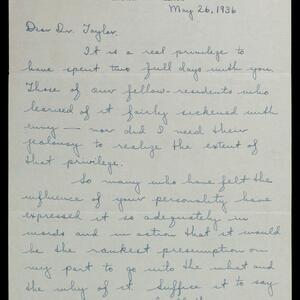 May 26, 1936
Dear Dr. Taylor,
It is a real privilege to
have spent two full days with you.
Those of our fellow-residents who
learned of it fairly sickened with
envy — nor did I need their
jealousy to realize the extent of
that privilege.
So many who have felt the
influence of your personality have
expressed it so adequately in
words and in action that it would
be the rankest presumption on
my part to go into the what and
the why of it. Suffice it to say